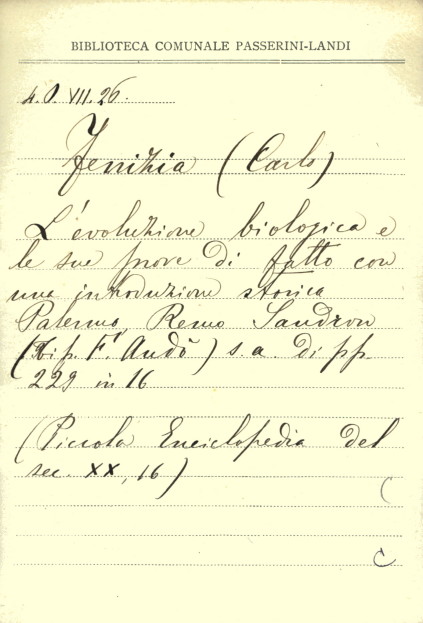 BIBLIOTECA COMUNALE PASSERINI-LANDI
4.O.VII.26.
Fenizia (Carlo)
L'evoluzione biologica e
le sue prove di fatto con
una introduzione storica
Palermo, Remo Sandron
(Tip. F. Andò) s. a. di pp.
229 in 16
(Piccola Enciclopedia del
sec. XX, 16)
C
C